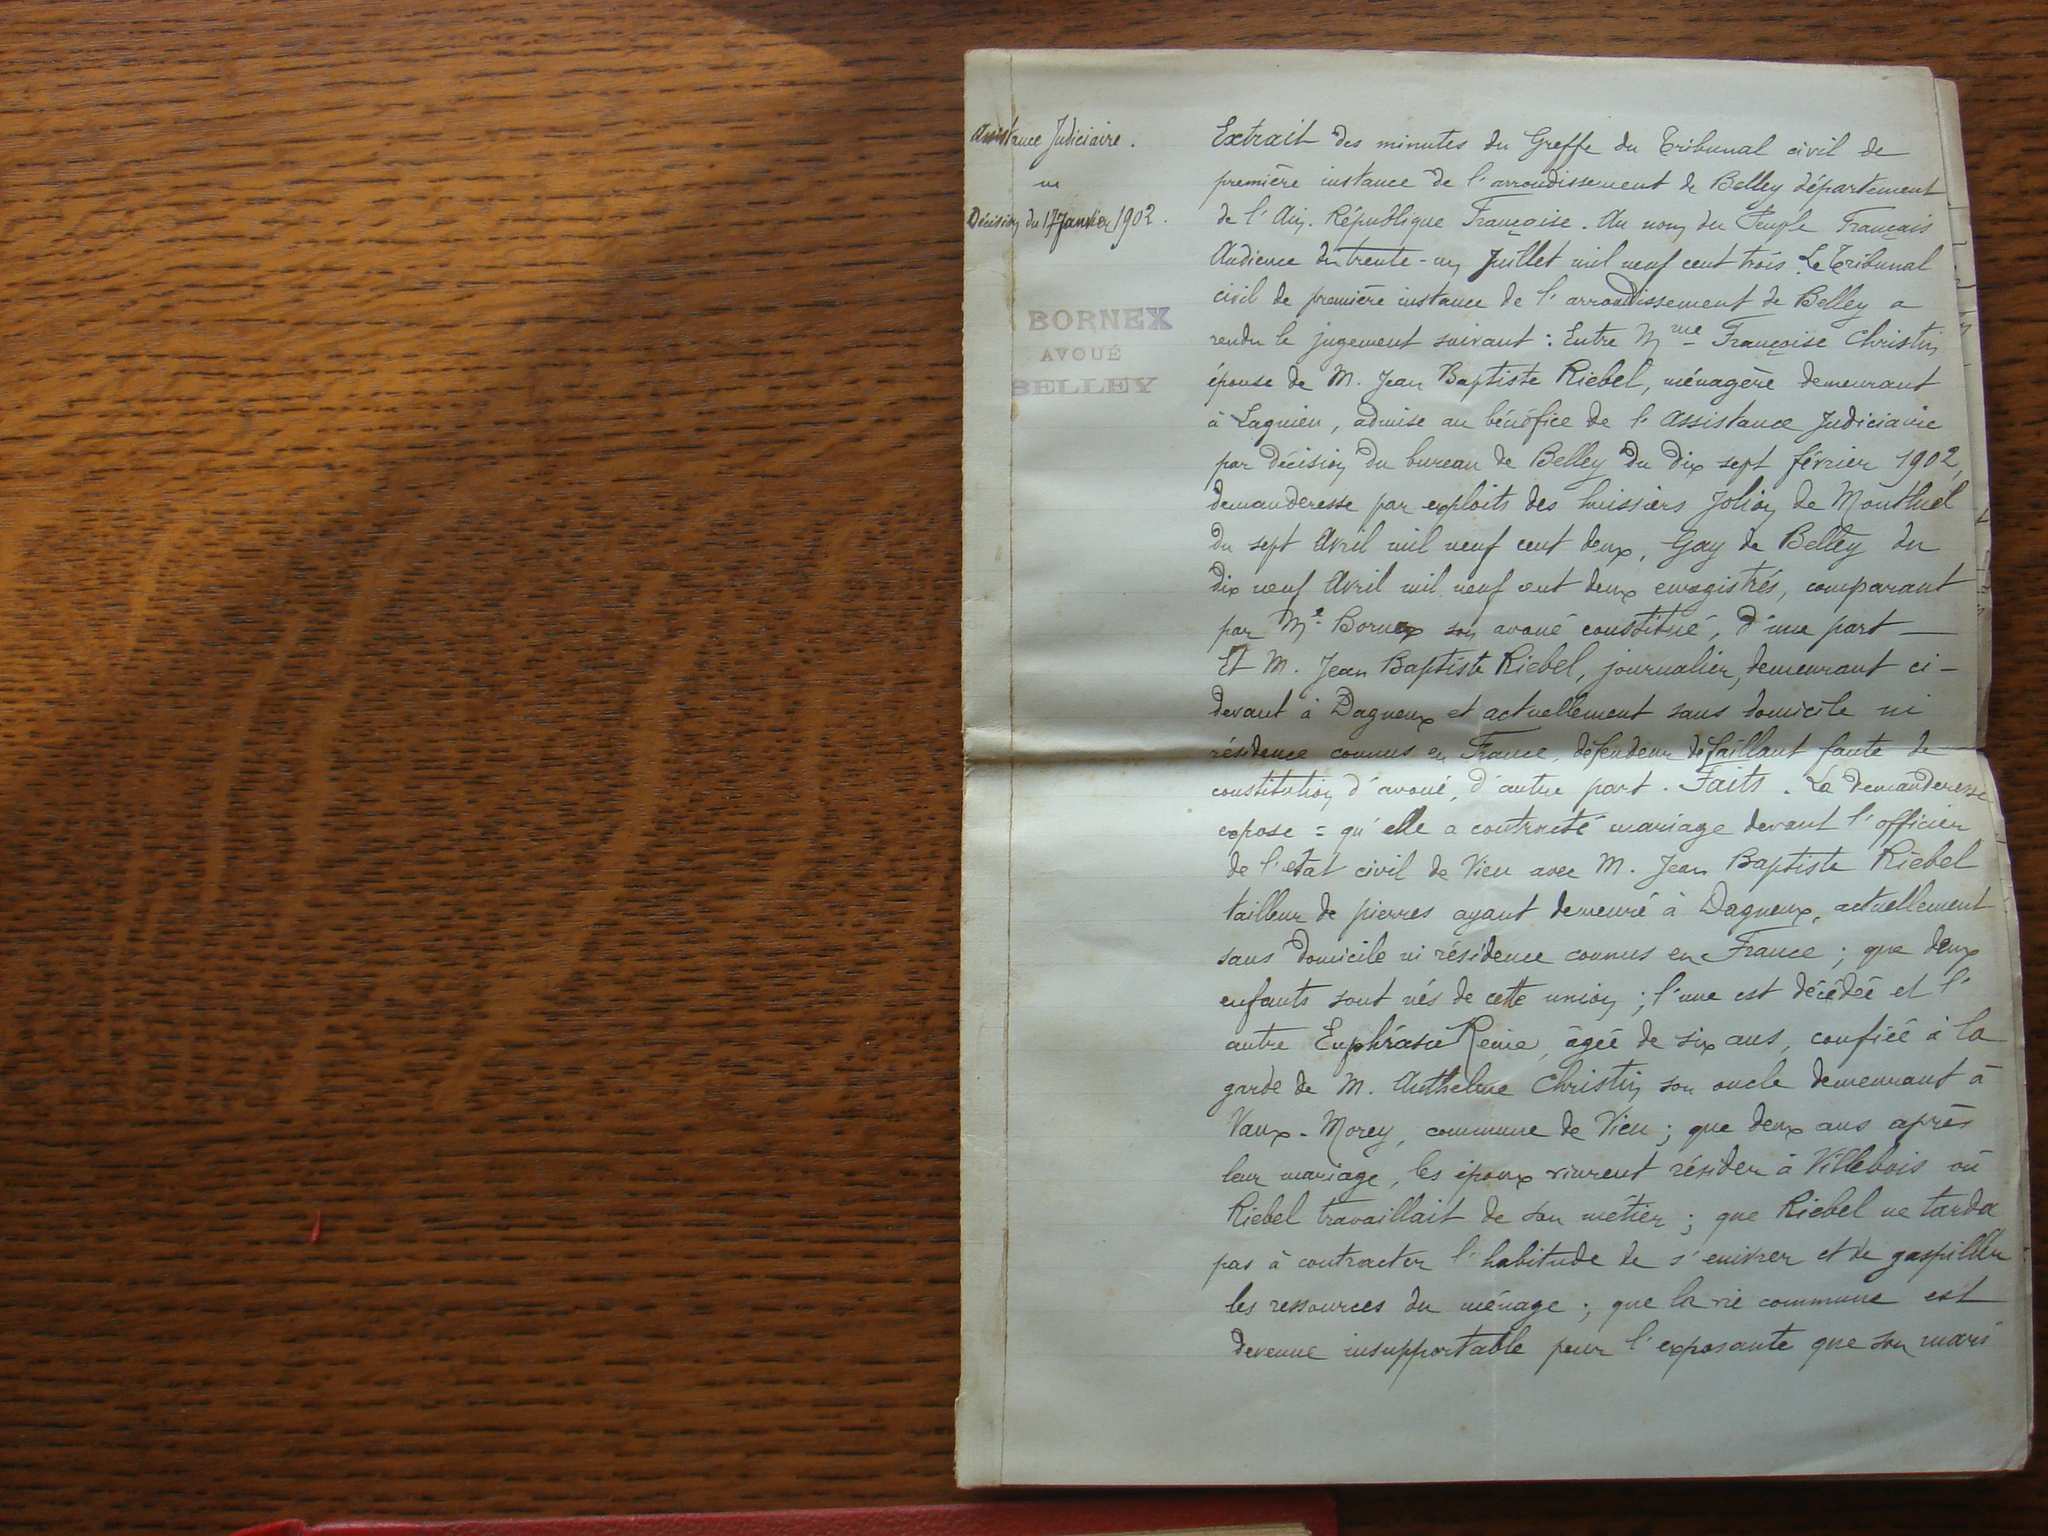 Assistance Judiciaire.
Décision du 17 Janvier 1902.
BORNEX
AVOUÉ
BELLEY
Extrait des minutes du Greffe du Tribunal civil de
première instance de l'arrondissement de Belley département
de l'Ain. République Française. Au nom du Peuple Français
Audience du trente-un Juillet mil neuf cent trois. Le Tribunal
civil de première instance de l'arrondissement de Belley a
rendu le jugement suivant : Entre Mme Françoise Christin
épouse de M. Jean Baptiste Riebel, ménagère demeurant
à Lagnieu, admise au bénéfice de l'Assistance Judiciaire
par décision du bureau de Belley du dix sept février 1902,
demanderesse par exploits des huissiers Jolion de Montluel
du sept Avril mil neuf cent deux, Gay de Belley du
dix neuf Avril mil neuf cent deux enregistrés, comparant
par Me Bornex son avoué constitué, d'une part —
Et M. Jean Baptiste Riebel, journalier, demeurant ci-
devant à Dagneux et actuellement sans domicile ni
résidence connus en France, défendeur défaillant faute de
constitution d'avoué, d'autre part. Faits. La demanderesse
expose = qu'elle a contracté mariage devant l'officier
de l'etat civil de Vieu avec M. Jean Baptiste Riebel
tailleur de pierres ayant demeuré à Dagneux, actuellement
sans domicile ni résidence connus en France ; que deux
enfants sont nés de cette union ; l'une est décédée et l'
autre Euphrasie Renée, âgée de six ans, confiée à la
garde de M. Anthelme Christin son oncle demeurant à
Vaux-Morey, commune de Vieu ; que deux ans après
leur mariage, les époux vinrent résider à Villebois où
Riebel travaillait de son métier ; que Riebel ne tarda
pas à contracter l'habitude de s'enivrer et de gaspiller
les ressources du ménage ; que la vie commune est
devenue insupportable pour l'exposante que son mari